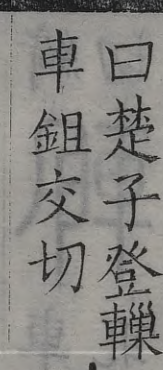 曰楚子登轈
車鉏交切